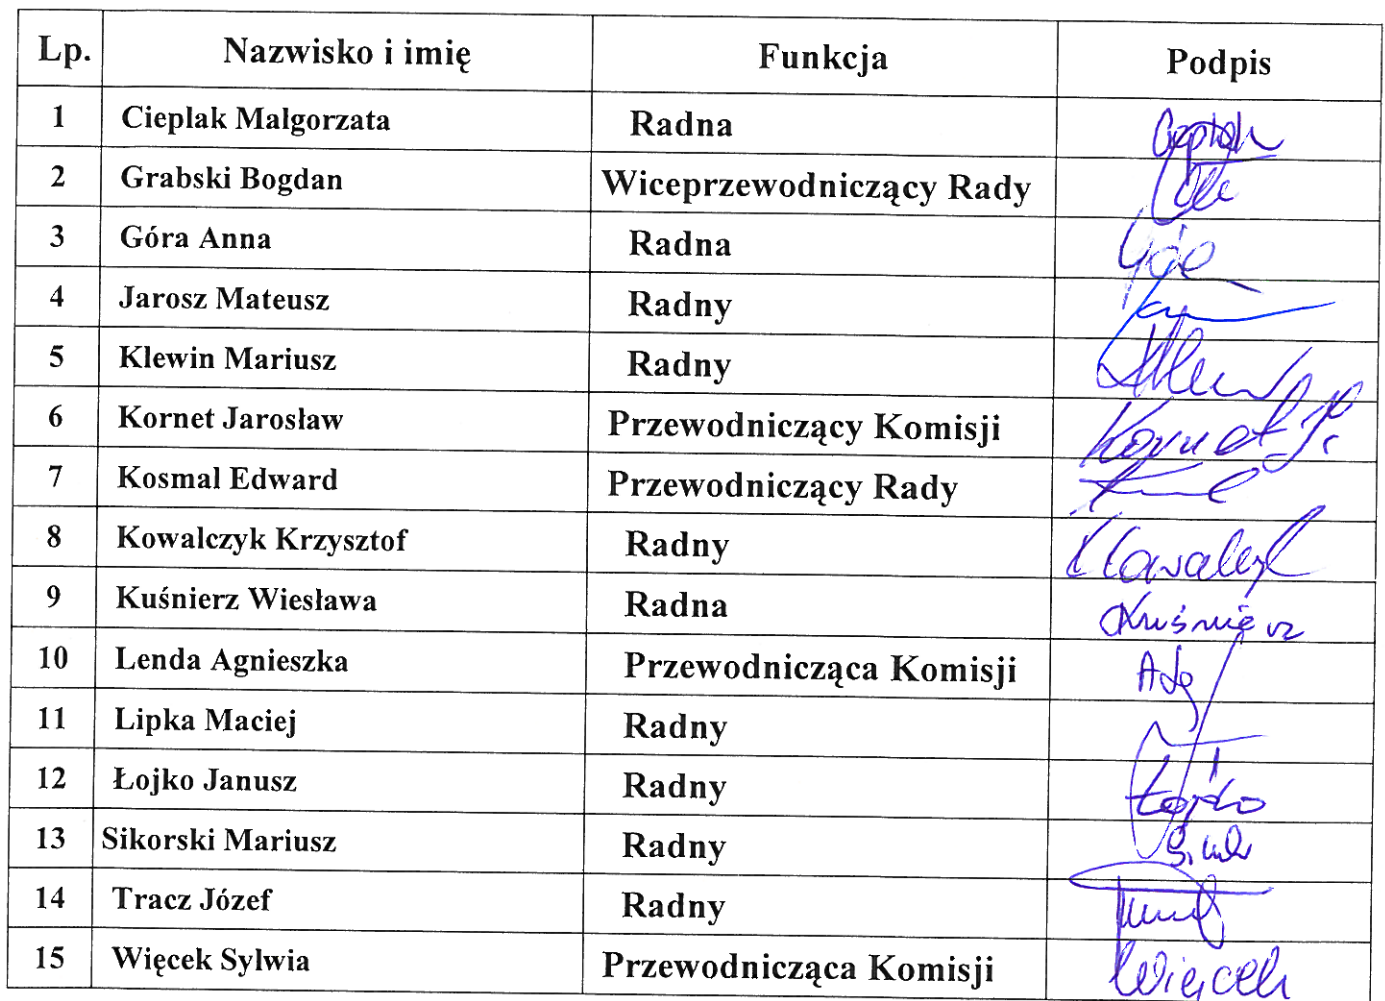 Lp. Nazwisko i imię Funkcja Podpis
1 Cieplak Małgorzata Radna
2 Grabski Bogdan Wiceprzewodniczący Rady
3 Góra Anna Radna Góra
4 Jarosz Mateusz Radny
5 Klewin Mariusz Radny
6 Kornet Jarosław Przewodniczący Komisji Kornet J
7 Kosmal Edward Przewodniczący Rady
8 Kowalczyk Krzysztof Radny Kowalczyk
9 Kuśnierz Wiesława Radna Kuśnierz
10 Lenda Agnieszka Przewodnicząca Komisji
11 Lipka Maciej Radny
12 Łojko Janusz Radny Łojko
13 Sikorski Mariusz Radny
14 Tracz Józef Radny
15 Więcek Sylwia Przewodnicząca Komisji Więcek